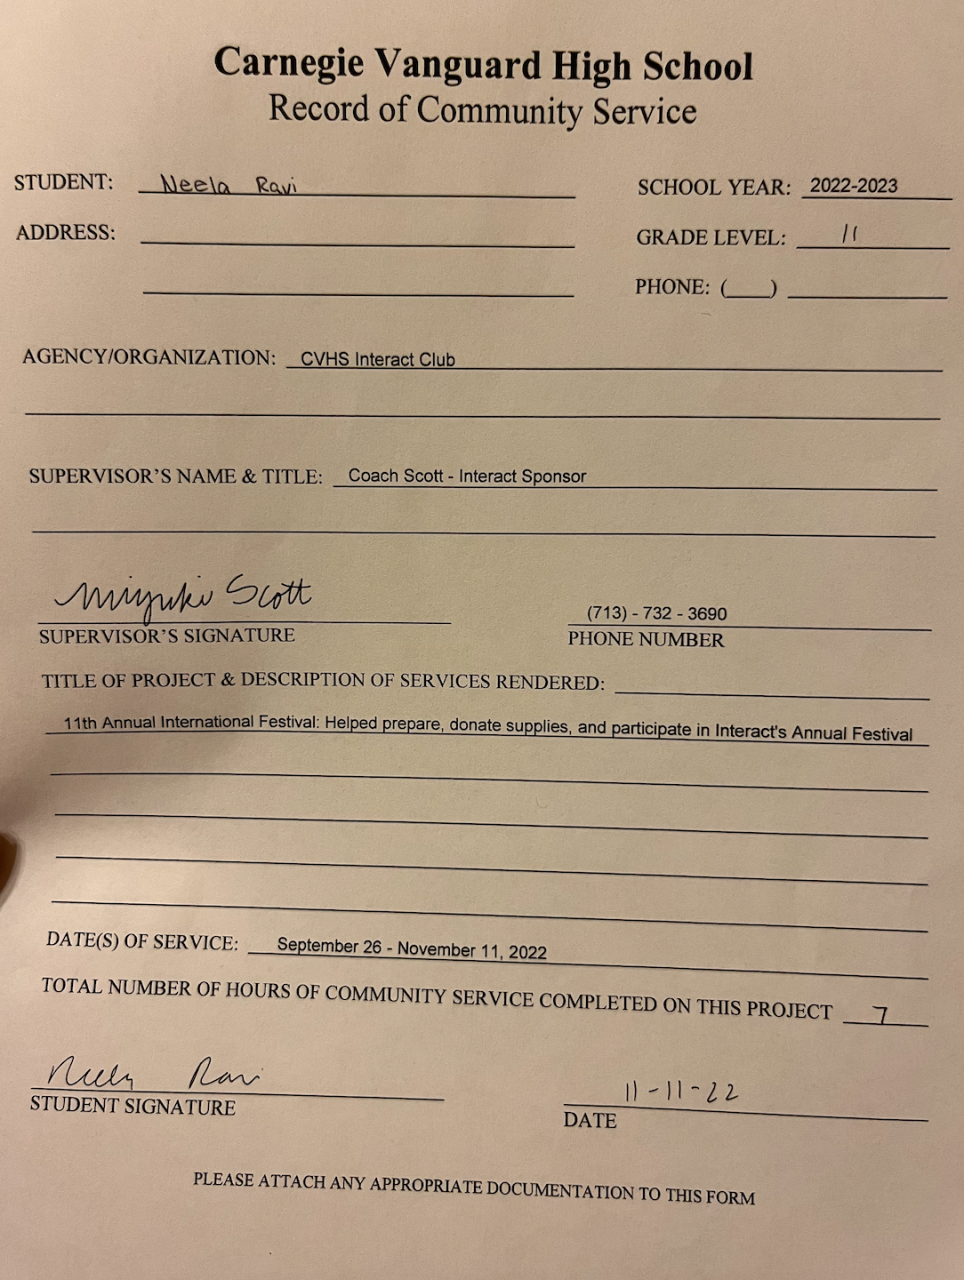 Carnegie Vanguard High School
Record of Community Service
STUDENT: Neela Ravi SCHOOL YEAR: 2022-2023
ADDRESS: GRADE LEVEL: 11
PHONE: (___)
AGENCY/ORGANIZATION: CVHS Interact Club
SUPERVISOR'S NAME & TITLE: Coach Scott - Interact Sponsor
Miyuki Scott (713) - 732 - 3690
SUPERVISOR'S SIGNATURE PHONE NUMBER
TITLE OF PROJECT & DESCRIPTION OF SERVICES RENDERED:
11th Annual International Festival: Helped prepare, donate supplies, and participate in Interact's Annual Festival
DATE(S) OF SERVICE: September 26 - November 11, 2022
TOTAL NUMBER OF HOURS OF COMMUNITY SERVICE COMPLETED ON THIS PROJECT 7
Neela Ravi 11-11-22
STUDENT SIGNATURE DATE
PLEASE ATTACH ANY APPROPRIATE DOCUMENTATION TO THIS FORM